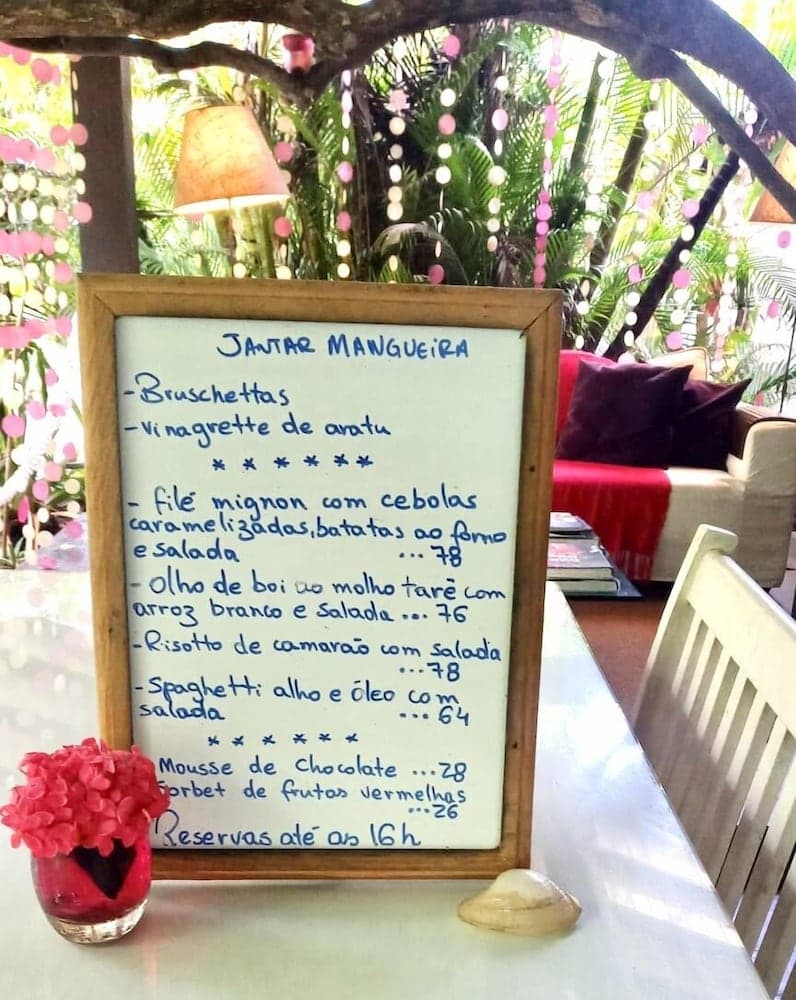 JANTAR MANGUEIRA
-Bruschettas
-vinagrette de aratu
* * * * * *
- filé mignon com cebolas
caramelizadas, batatas ao forno
e salada ... 78
- olho de boi ao molho tarê com
arroz branco e salada ... 76
-Risotto de camarão com salada
... 78
-Spaghetti alho e óleo com
salada ... 64
* * * * * *
Mousse de chocolate ... 28
orbet de frutas vermelhas
... 26
Reservas até as 16h